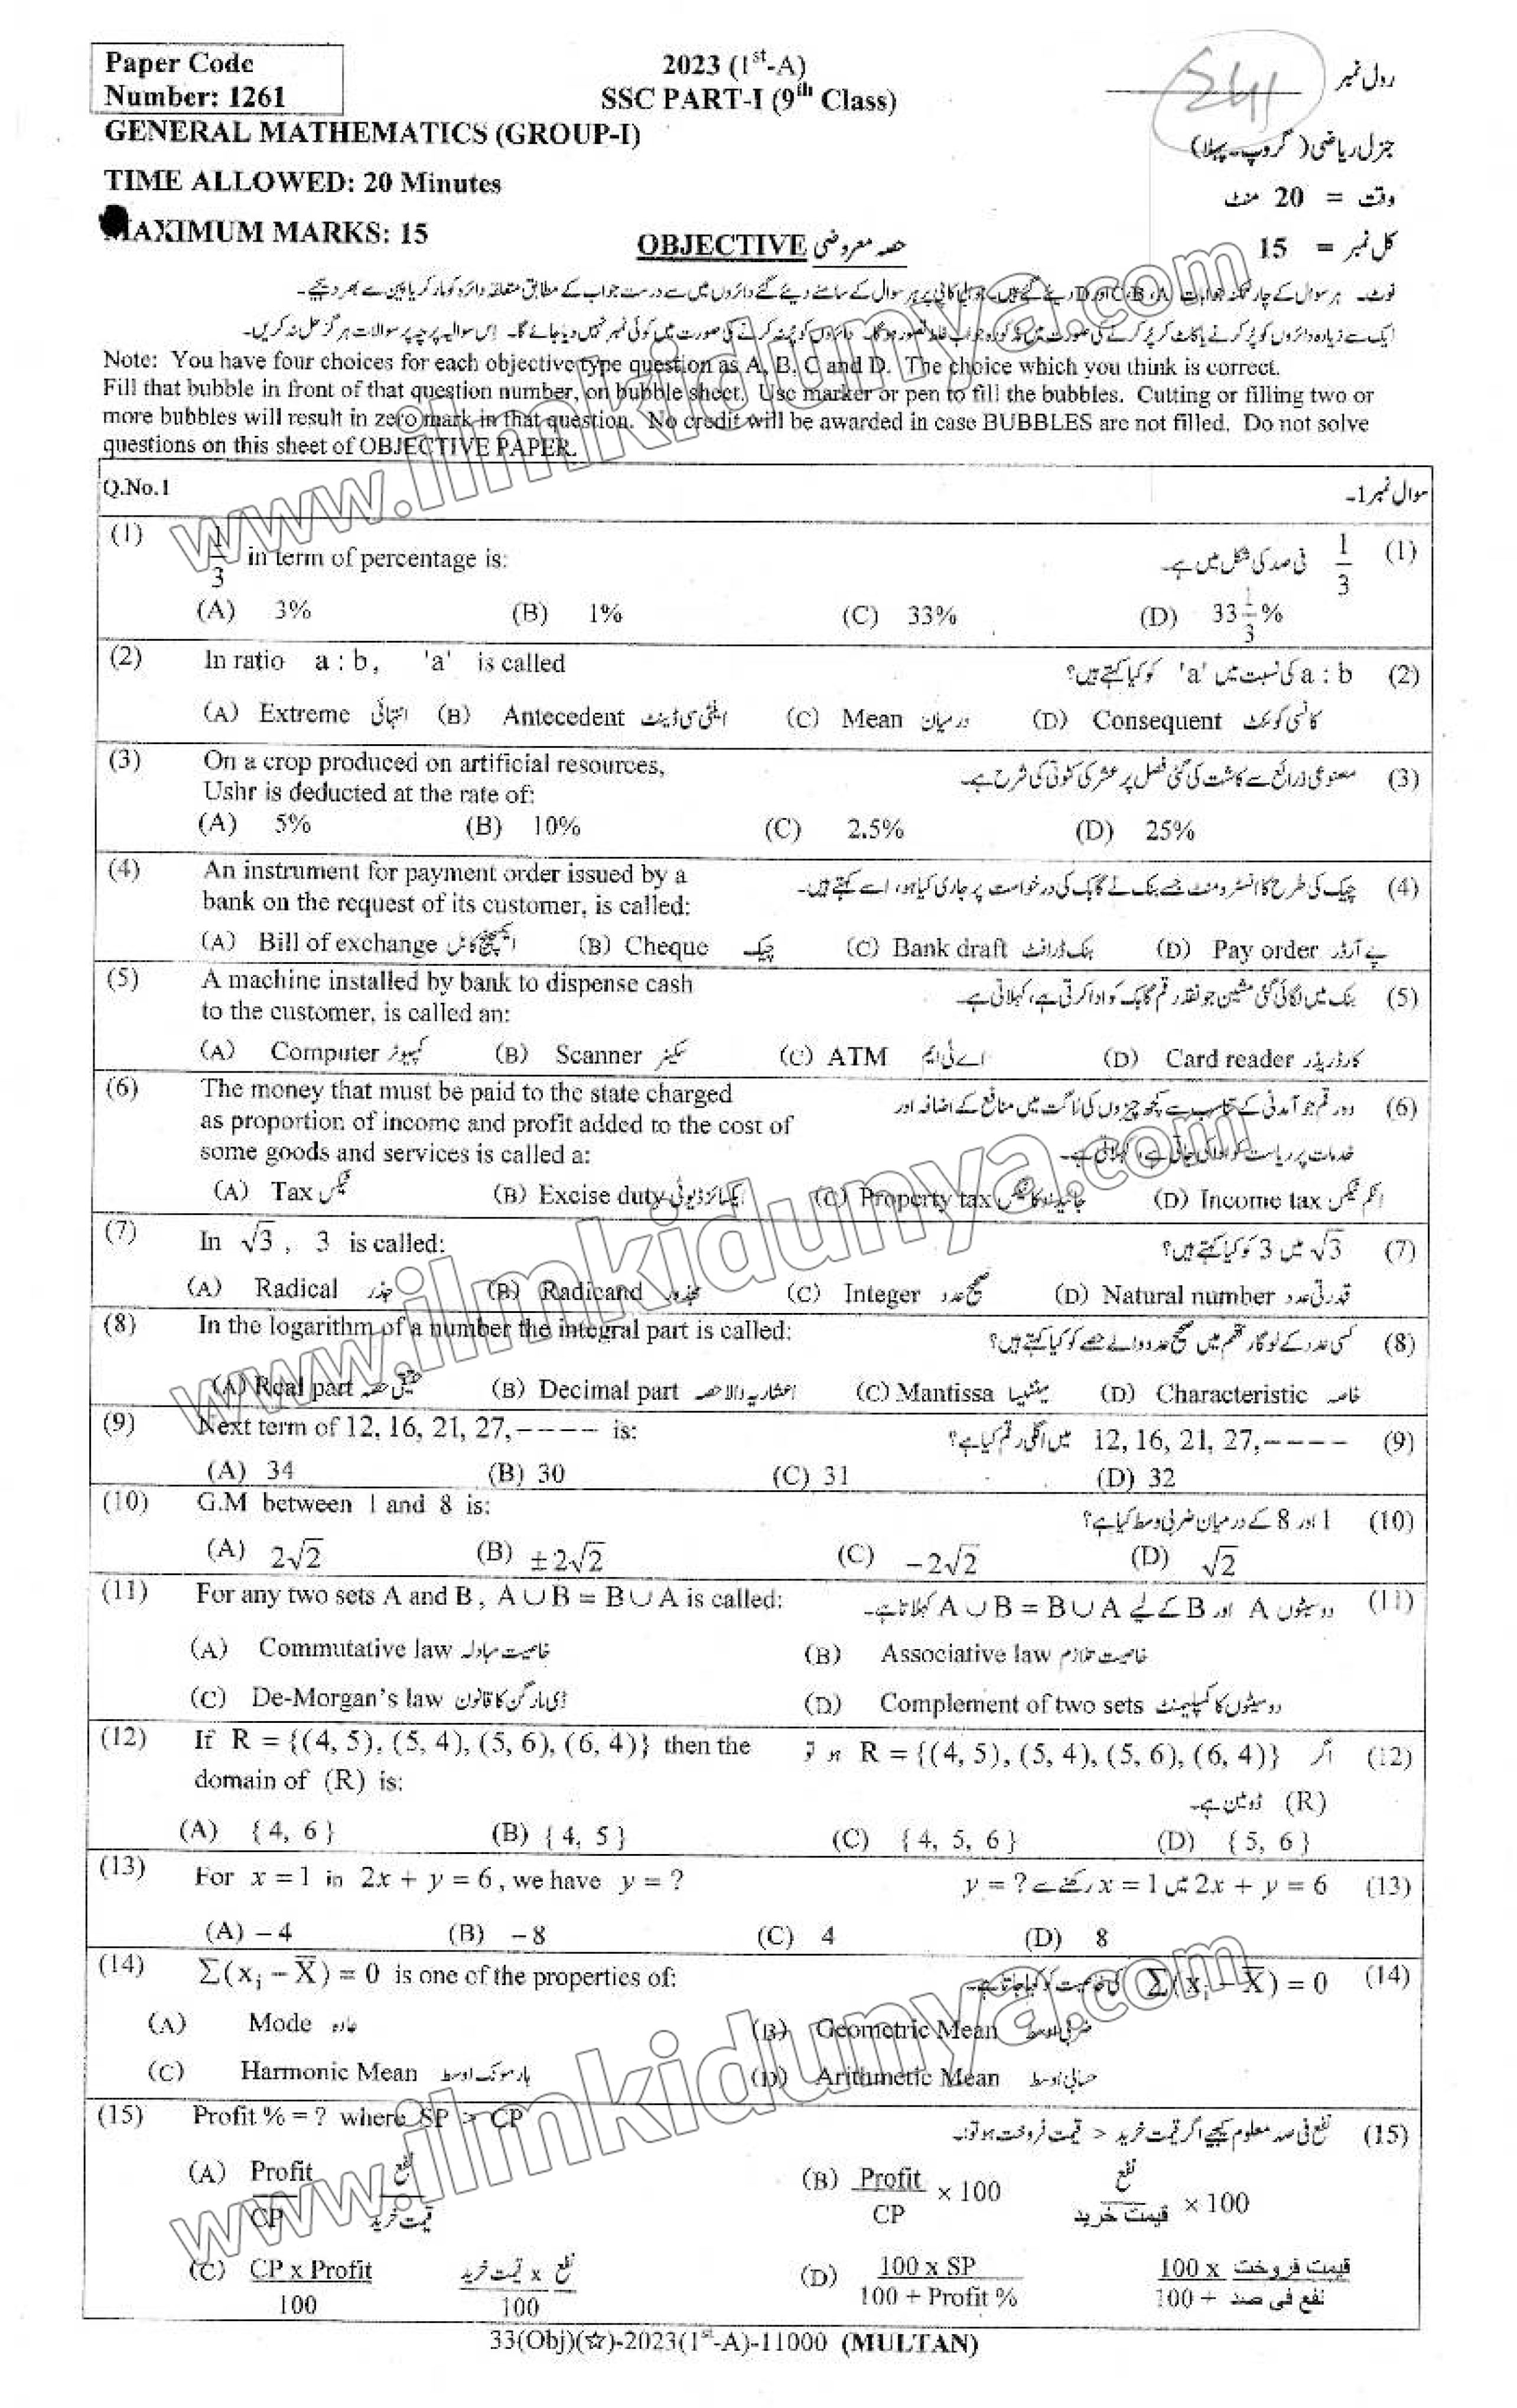 Paper Code
Number: 1261
2023 (1st-A)
SSC PART-I (9th Class)
رول نمبر
GENERAL MATHEMATICS (GROUP-I)
جنرل ریاضی (گروپ۔پہلا)
TIME ALLOWED: 20 Minutes
وقت = 20 منٹ
MAXIMUM MARKS: 15
OBJECTIVE حصہ معروضی
کل نمبر = 15
نوٹ۔ ہر سوال کے چار ممکنہ جوابات A، B، C اور D دیئے گئے ہیں۔ جوابی کاپی پر ہر سوال کے سامنے دیئے گئے دائروں میں سے درست جواب کے مطابق متعلقہ دائرہ کو مارکر یا پین سے بھر دیجیے۔
ایک سے زیادہ دائروں کو پُر کرنے یا کاٹ کر پُر کرنے کی صورت میں مذکورہ جواب غلط تصور ہوگا۔ دائروں کو پُر نہ کرنے کی صورت میں کوئی نمبر نہیں دیا جائے گا۔ اِس سوالیہ پرچہ پر سوالات ہرگز حل نہ کریں۔
Note: You have four choices for each objective type question as A, B, C and D. The choice which you think is correct.
Fill that bubble in front of that question number, on bubble sheet. Use marker or pen to fill the bubbles. Cutting or filling two or
more bubbles will result in zero mark in that question. No credit will be awarded in case BUBBLES are not filled. Do not solve
questions on this sheet of OBJECTIVE PAPER.
Q.No.1 سوال نمبر 1۔
(1) 1/3 in term of percentage is: 1/3 فی صد کی شکل میں ہے۔ (1)
(A) 3% (B) 1% (C) 33% (D) 33 1/3 %
(2) In ratio a : b, 'a' is called a : b کی نسبت میں 'a' کو کیا کہتے ہیں؟ (2)
(A) Extreme انتہائی (B) Antecedent اینٹی سی ڈینٹ (C) Mean درمیان (D) Consequent کانسی کوئنٹ
(3) On a crop produced on artificial resources, مصنوعی ذرائع سے کاشت کی گئی فصل پر عشر کی کٹوتی کی شرح ہے۔ (3)
Ushr is deducted at the rate of:
(A) 5% (B) 10% (C) 2.5% (D) 25%
(4) An instrument for payment order issued by a چیک کی طرح کا انسٹرومنٹ جسے بنک نے گاہک کی درخواست پر جاری کیا ہو، اسے کہتے ہیں۔ (4)
bank on the request of its customer, is called:
(A) Bill of exchange ایکسچینج کا بل (B) Cheque چیک (C) Bank draft بنک ڈرافٹ (D) Pay order پے آرڈر
(5) A machine installed by bank to dispense cash بنک میں لگائی گئی مشین جو نقد رقم گاہک کو ادا کرتی ہے، کہلاتی ہے۔ (5)
to the customer, is called an:
(A) Computer کمپیوٹر (B) Scanner سکینر (C) ATM اے ٹی ایم (D) Card reader کارڈ ریڈر
(6) The money that must be paid to the state charged وہ رقم جو آمدنی کے تناسب سے کچھ چیزوں کی لاگت میں منافع کے اضافہ اور (6)
as proportion of income and profit added to the cost of
some goods and services is called a: خدمات پر ریاست کو ادا کی جاتی ہے، کہلاتی ہے۔
(A) Tax ٹیکس (B) Excise duty ایکسائز ڈیوٹی (C) Property tax جائیداد کا ٹیکس (D) Income tax انکم ٹیکس
(7) In √3 , 3 is called: √3 میں 3 کو کیا کہتے ہیں؟ (7)
(A) Radical جذر (B) Radicand مجذور (C) Integer صحیح عدد (D) Natural number قدرتی عدد
(8) In the logarithm of a number the integral part is called: کسی عدد کے لوگارتھم میں صحیح عدد والے حصے کو کیا کہتے ہیں؟ (8)
(A) Real part حقیقی حصہ (B) Decimal part اعشاریہ والا حصہ (C) Mantissa مینٹیسا (D) Characteristic خاصہ
(9) Next term of 12, 16, 21, 27,---- is: 12, 16, 21, 27,---- میں اگلی رقم کیا ہے؟ (9)
(A) 34 (B) 30 (C) 31 (D) 32
(10) G.M between 1 and 8 is: 1 اور 8 کے درمیان ضربی وسط کیا ہے؟ (10)
(A) 2√2 (B) ±2√2 (C) −2√2 (D) √2
(11) For any two sets A and B , A∪B = B∪A is called: دو سیٹوں A اور B کے لیے A∪B = B∪A کہلاتا ہے۔ (11)
(A) Commutative law خاصیت مبادلہ (B) Associative law خاصیت تلازم
(C) De-Morgan's law ڈی مارگن کا قانون (D) Complement of two sets دو سیٹوں کا کمپلیمنٹ
(12) If R = {(4, 5), (5, 4), (5, 6), (6, 4)} then the اگر R = {(4, 5), (5, 4), (5, 6), (6, 4)} ہو تو (12)
domain of (R) is: (R) ڈومین ہے۔
(A) {4, 6} (B) {4, 5} (C) {4, 5, 6} (D) {5, 6}
(13) For x = 1 in 2x + y = 6 , we have y = ? 2x + y = 6 میں x = 1 رکھنے سے y = ? (13)
(A) −4 (B) −8 (C) 4 (D) 8
(14) Σ(xᵢ − X̄) = 0 is one of the properties of: Σ(xᵢ − X̄) = 0 کی خاصیت کو کہا جاتا ہے۔ (14)
(A) Mode عادہ (B) Geometric Mean ضربی اوسط
(C) Harmonic Mean ہارمونک اوسط (D) Arithmetic Mean حسابی اوسط
(15) Profit % = ? where SP > CP نفع فی صد معلوم کیجیے اگر قیمت خرید < قیمت فروخت ہو تو۔ (15)
(A) Profit/CP نفع/قیمت خرید (B) Profit/CP × 100 نفع/قیمت خرید × 100
(C) CP x Profit/100 نفع x قیمت خرید/100 (D) 100 x SP/100 + Profit % قیمت فروخت x 100/نفع فی صد + 100
33(Obj)(☆)-2023(1st-A)-11000 (MULTAN)
www.ilmkidunya.com
www.ilmkidunya.com
www.ilmkidunya.com